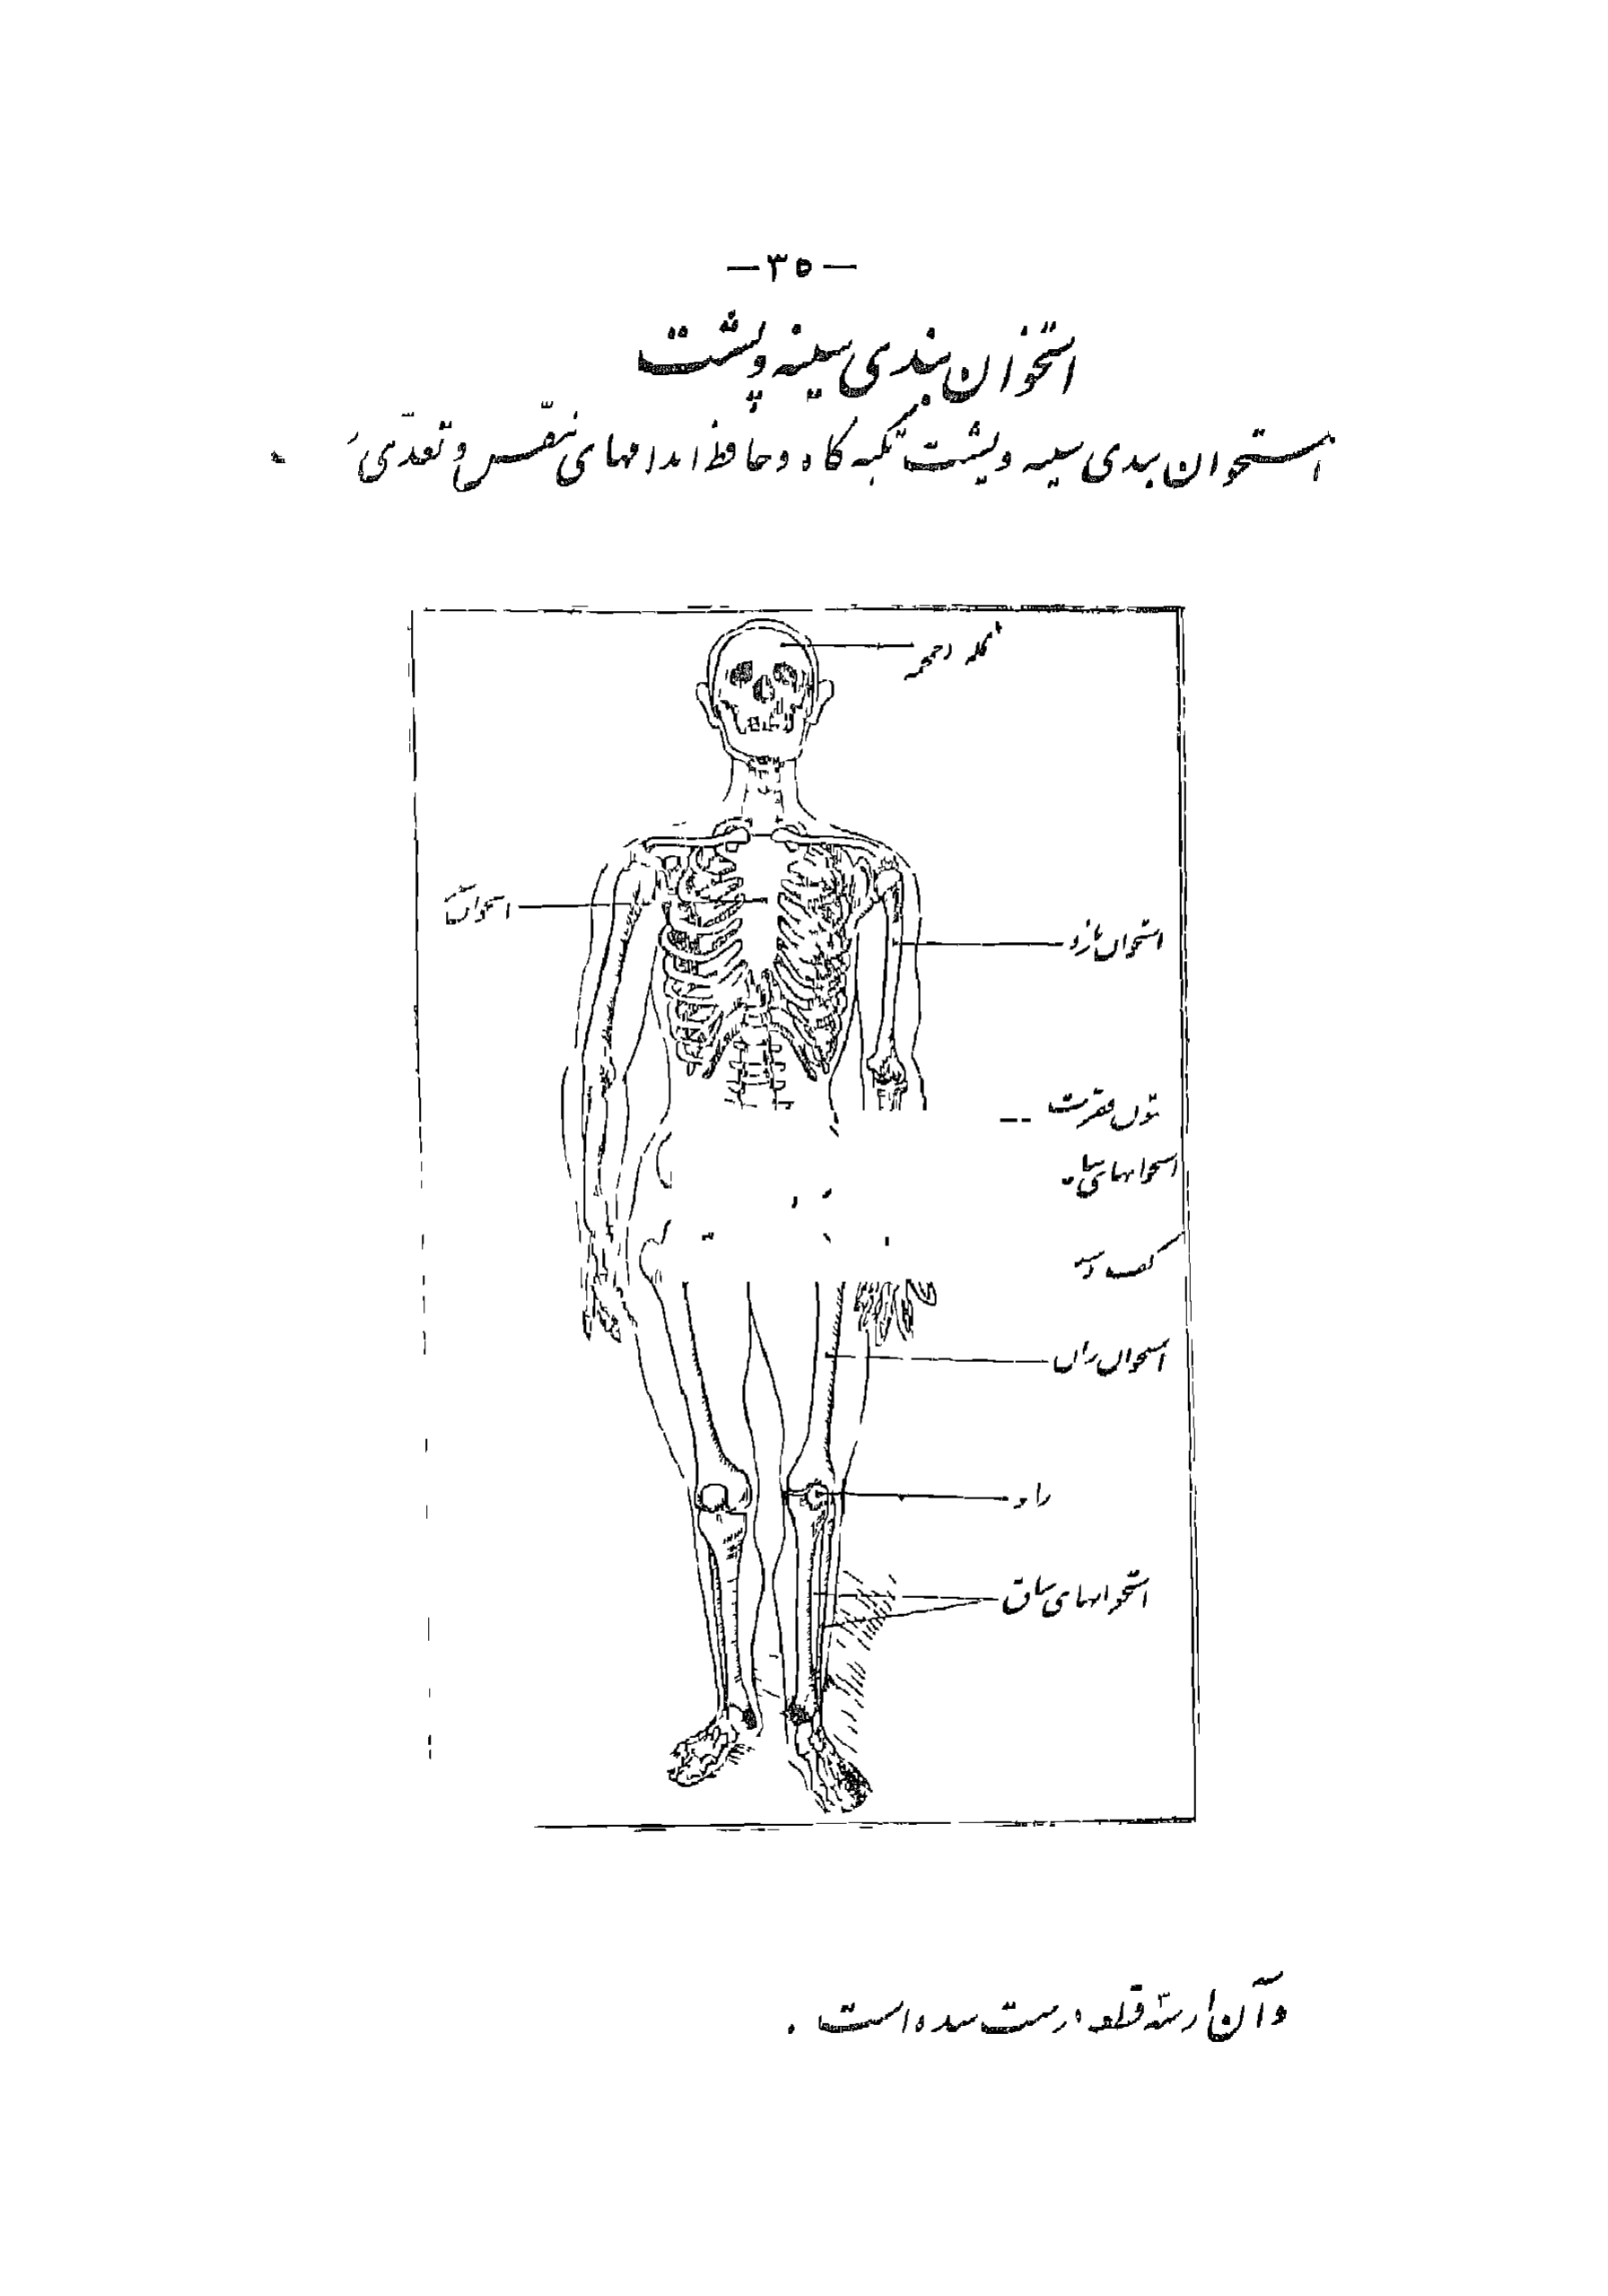 —۳۵—
استخوان بندی سینه و پشت
استخوان بندی سینه و پشت تکیه گاه و حافظ اندامهای تنفس و تغذی
کله
استخوان
استخوان بازو
ستون فقرات
استخوانهای
کف دست
استخوان ران
استخوانهای ساق
و آن از سه قطعه درست شده است .